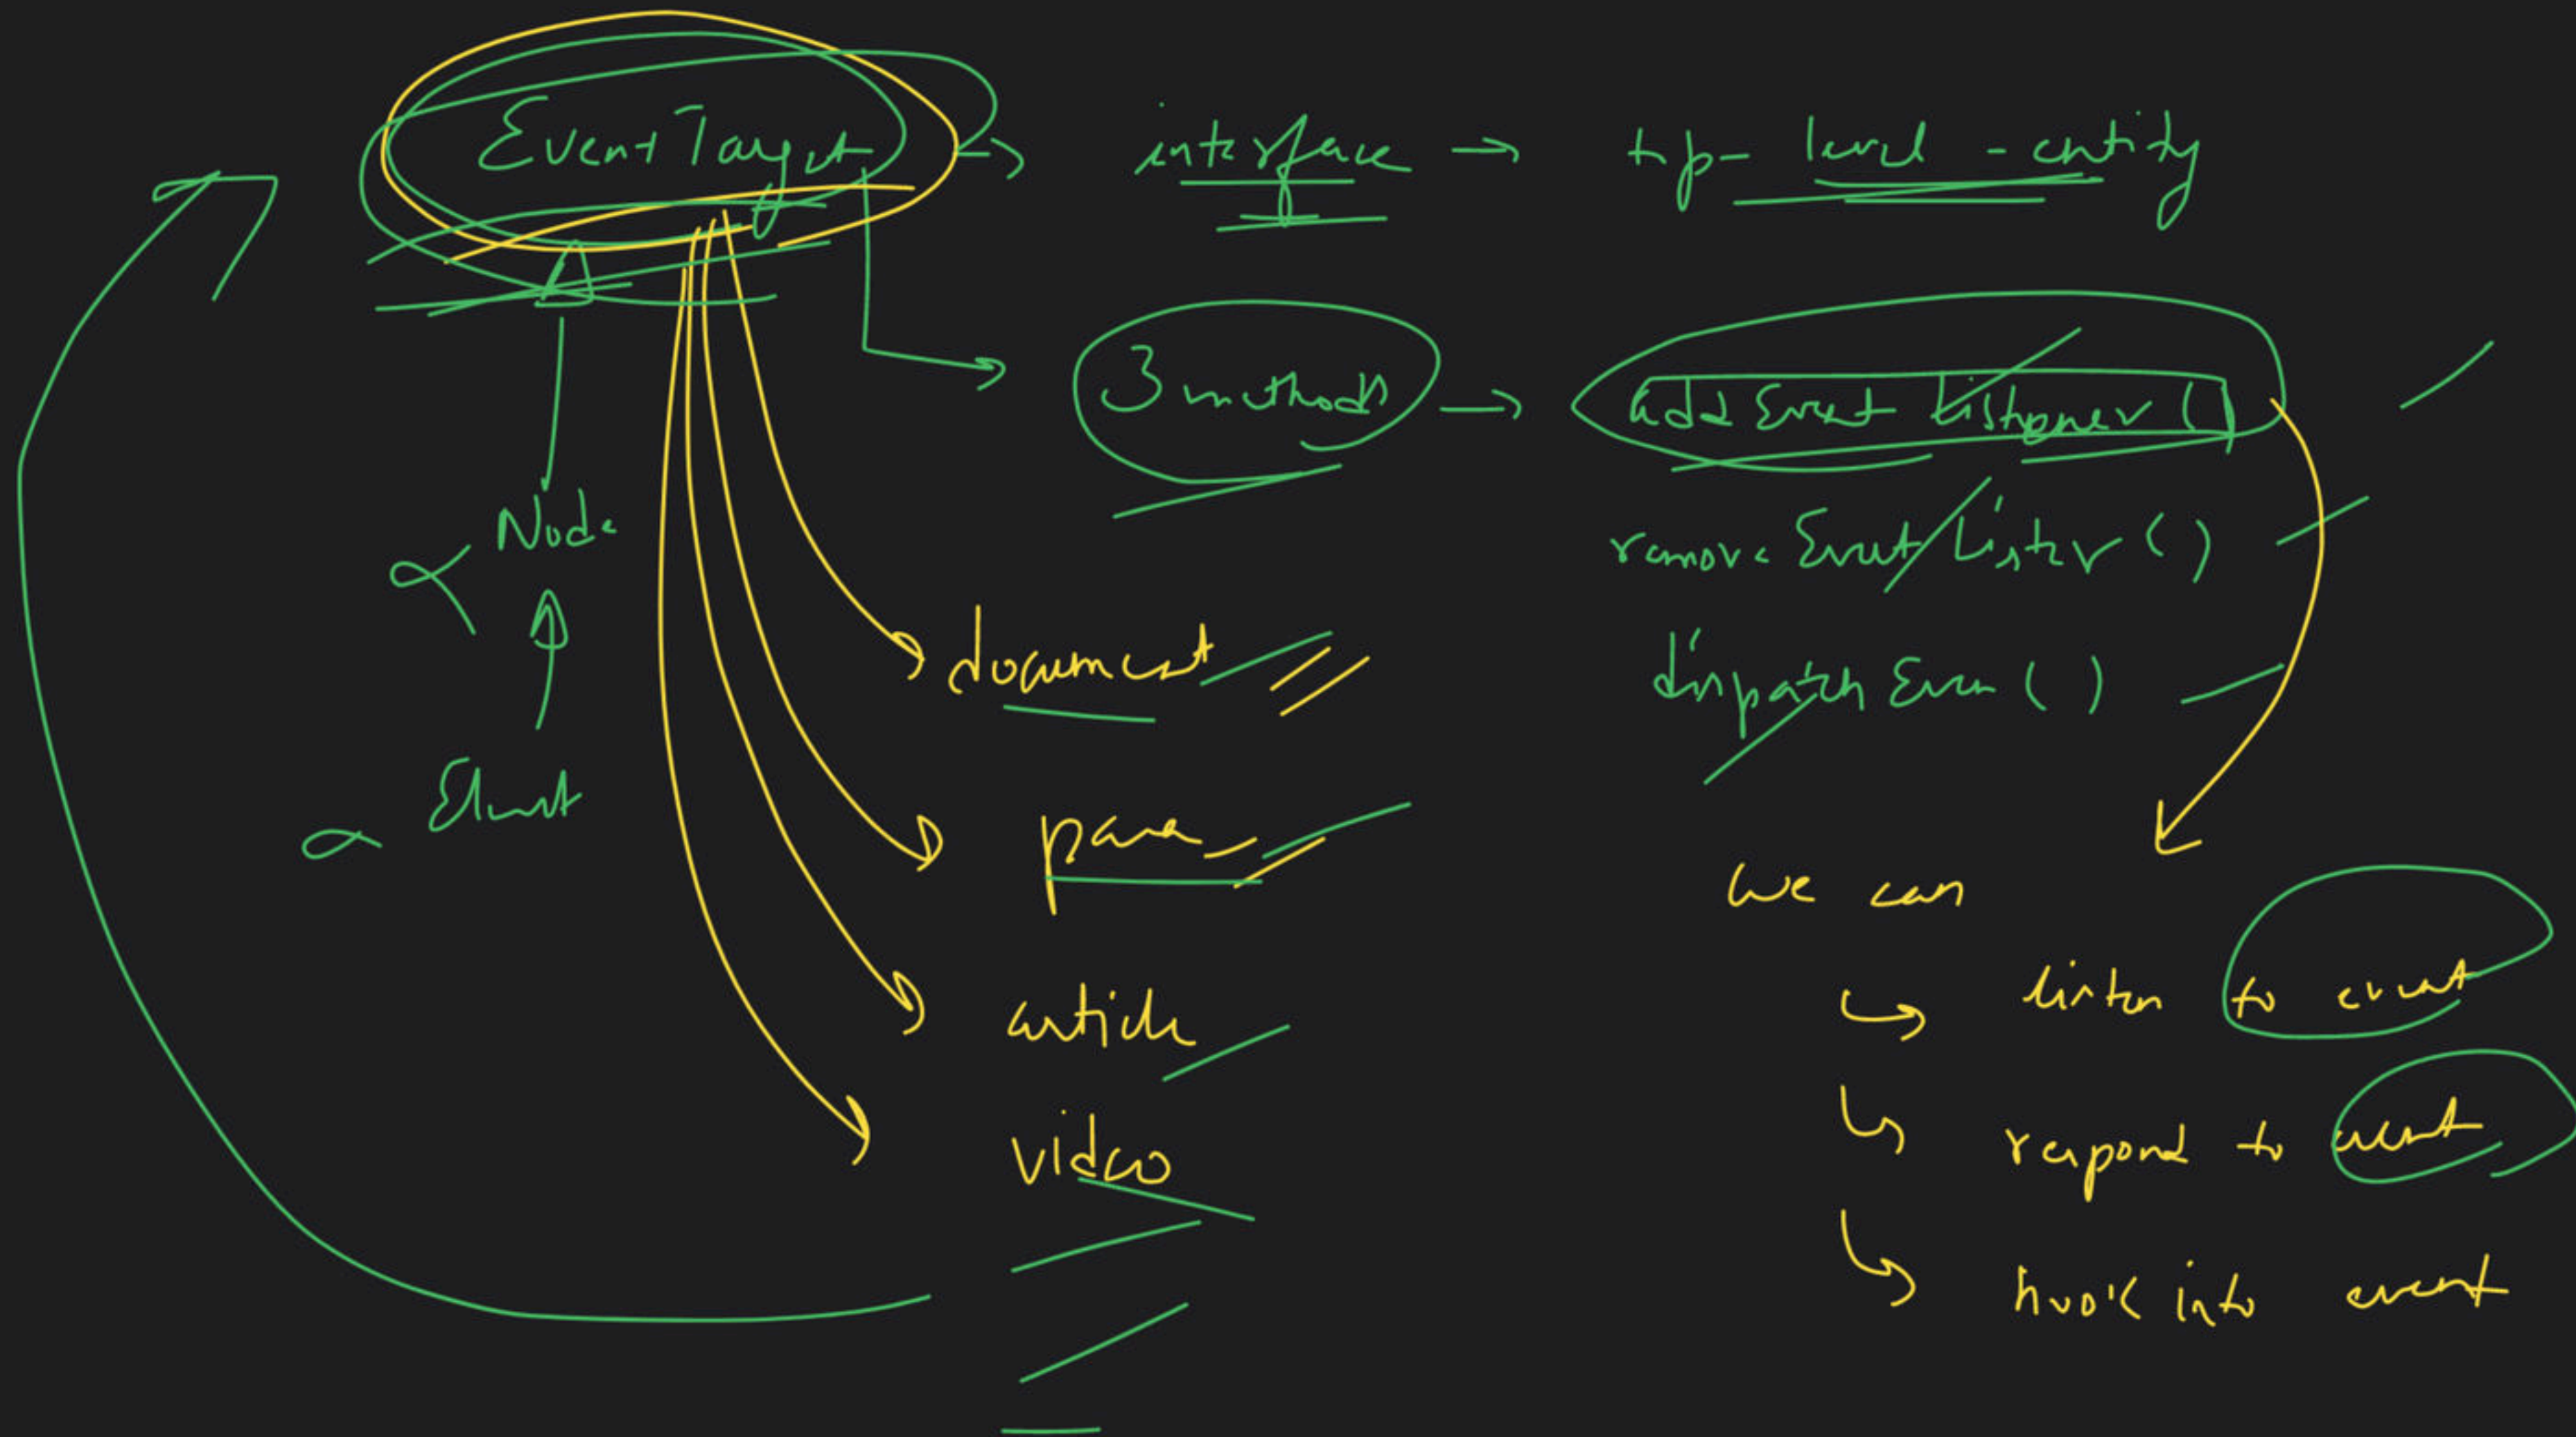 EventTarget → interface → top-level-entity
3 methods → addEventListener()
removeEventLister()
dispatchEven()
Node
Element
document
para
article
video
we can
listen to event
respond to event
hook into event